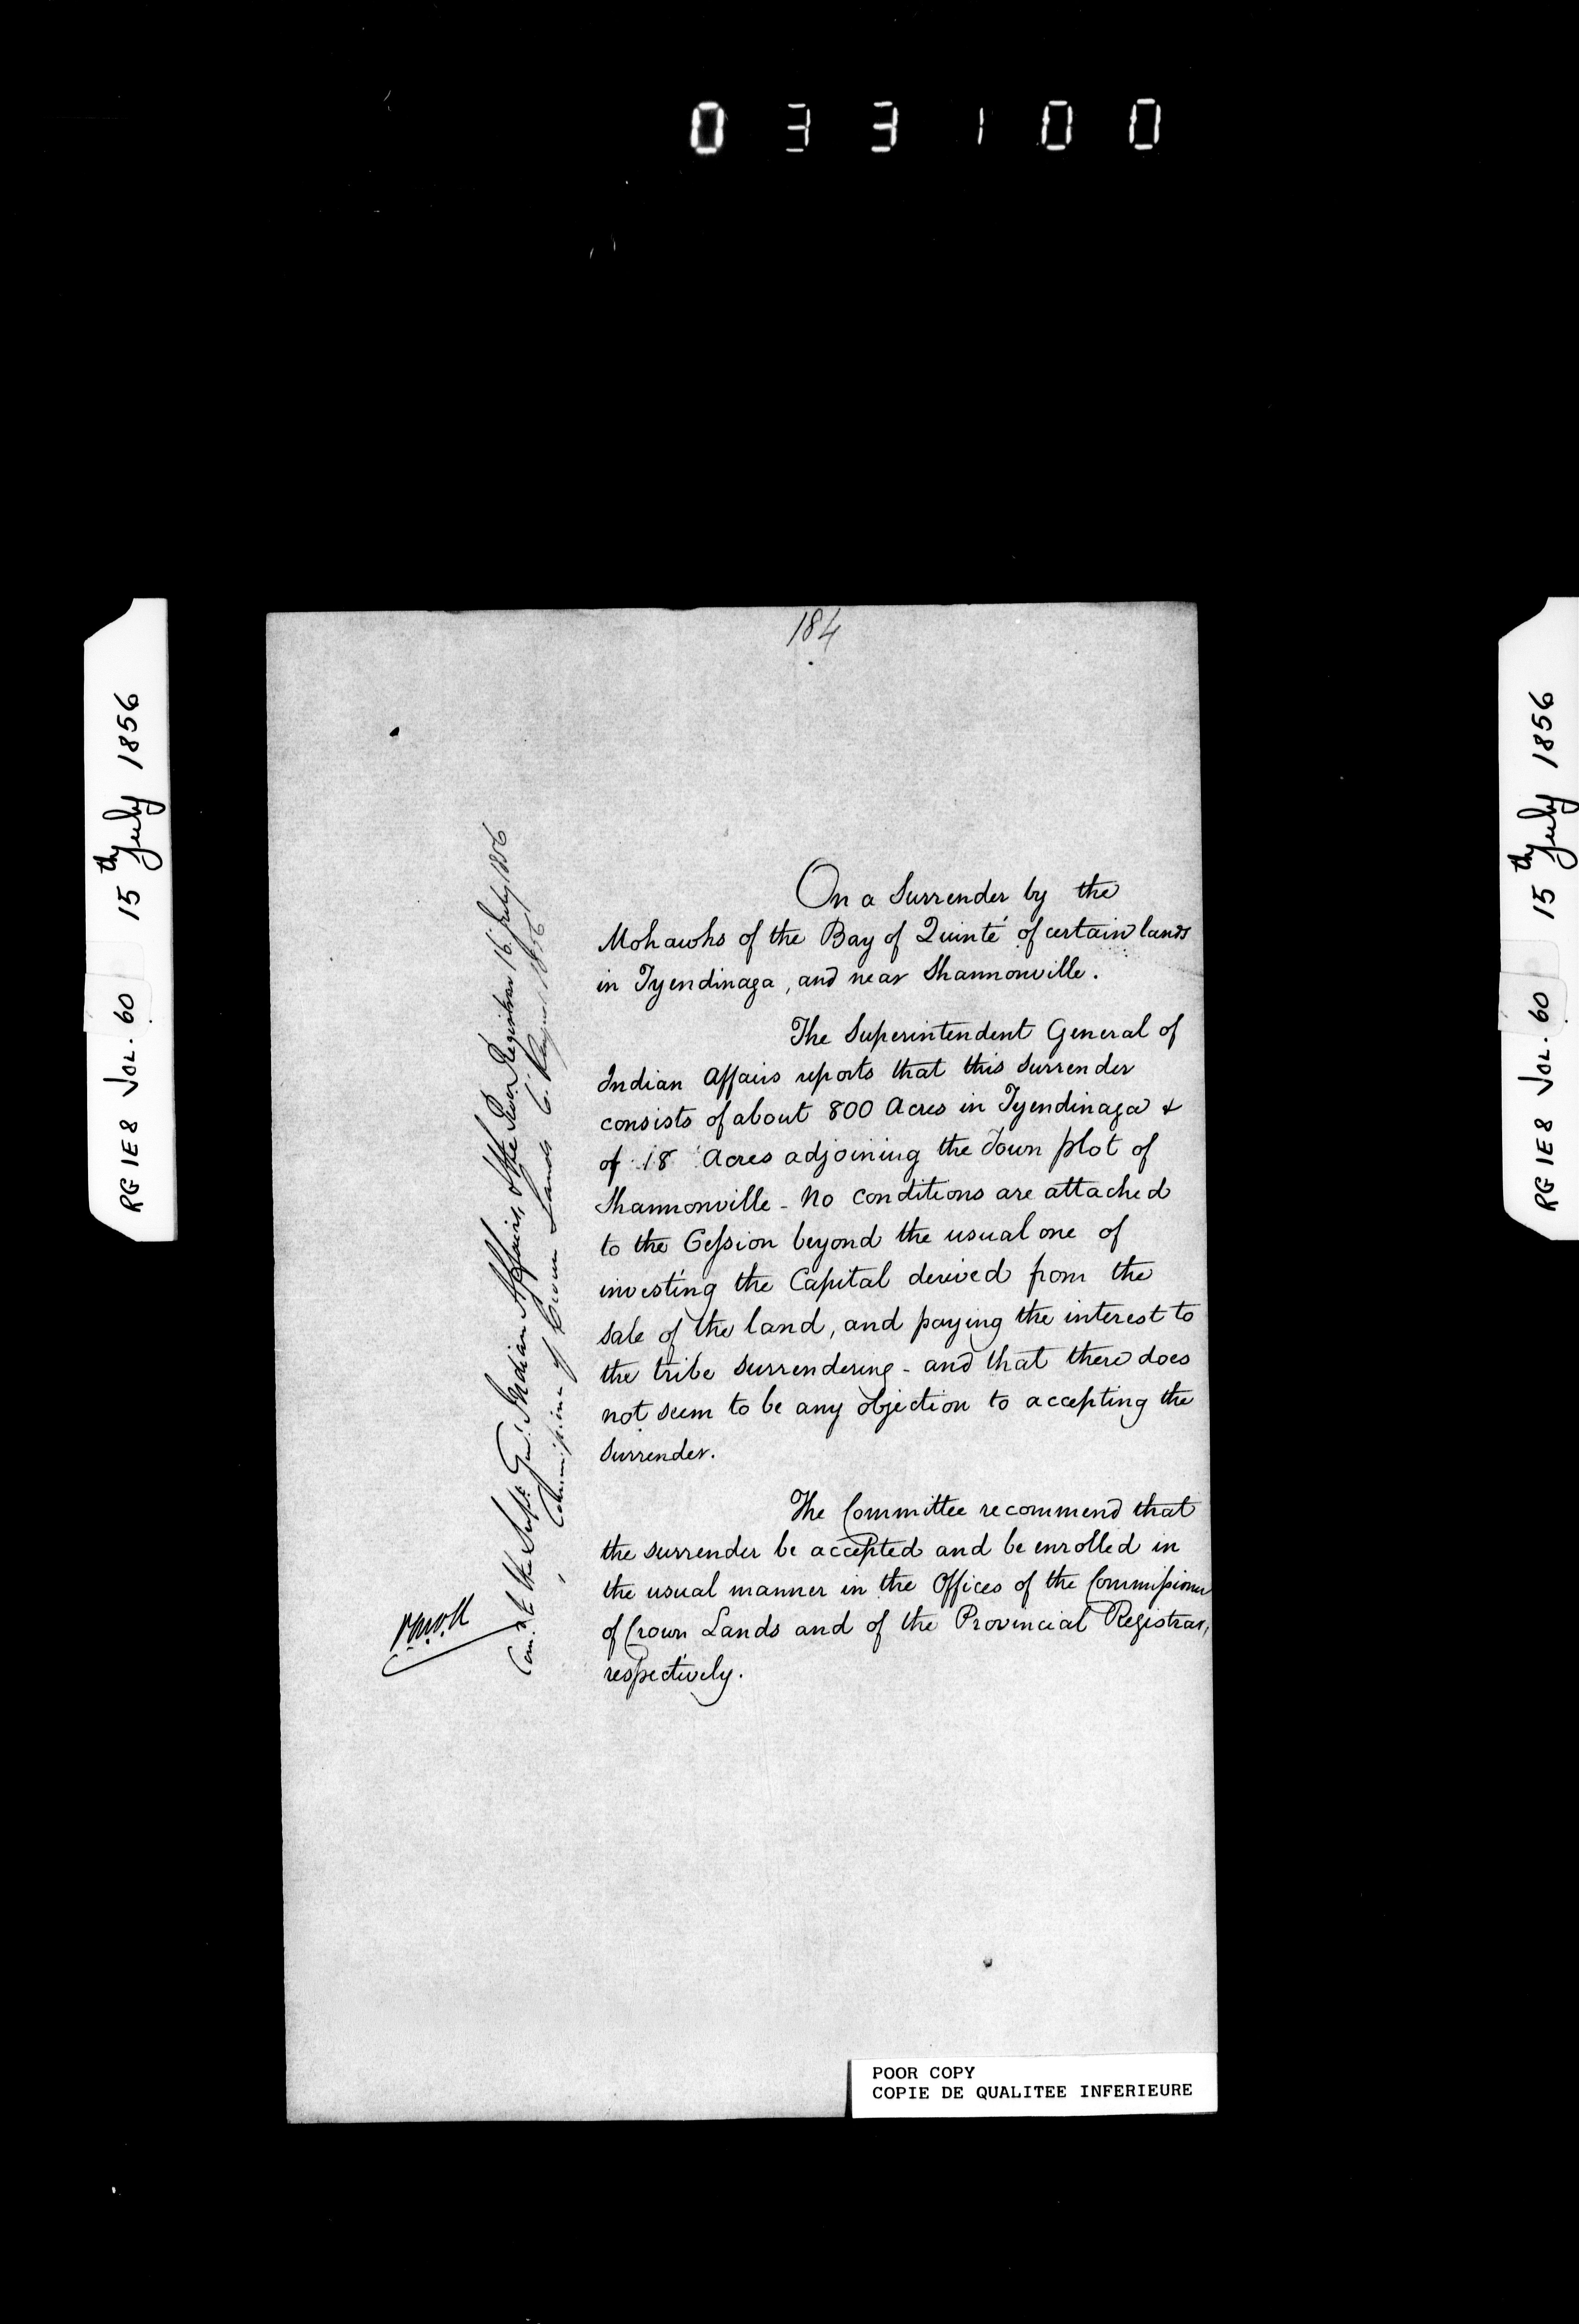 033100
RG 1 E8 VOL. 60 15th July 1856
184
On a Surrender by the
Mohawks of the Bay of Quinté of certain lands
in Tyendinaga, and near Shannonville.
The Superintendent General of
Indian Affairs reports that this Surrender
consists of about 800 Acres in Tyendinaga &
of 18 Acres adjoining the Town plot of
Shannonville - No conditions are attached
to the Cession beyond the usual one of
investing the Capital derived from the
sale of the land, and paying the interest to
the tribe surrendering - and that there does
not seem to be any objection to accepting the
Surrender.
The Committee recommend that
the surrender be accepted and be enrolled in
the usual manner in the Offices of the Commissioner
of Crown Lands and of the Provincial Registrar,
respectively.
Com. to the Supt. Genl. Indian Affairs, & the Prov. Registrar 16 July 1856
Commissioner of Crown Lands 6 August 1856
POOR COPY
COPIE DE QUALITEE INFERIEURE
RG 1 E8 VOL. 60 15th July 1856